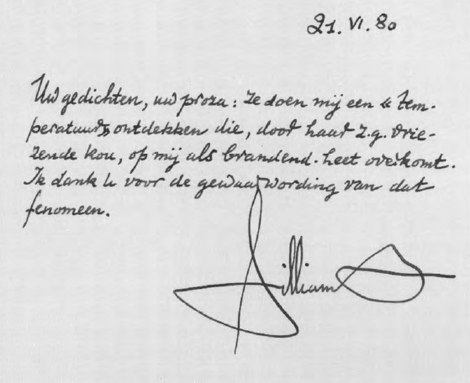 21.VI.80
Uw gedichten, uw proza: ze doen mij een « tem-
peratuur » ontdekken die, door haar z.g. vrie-
zende kou, op mij als brandend-heet overkomt.
Ik dank U voor de gewaarwording van dat
fenomeen.
William